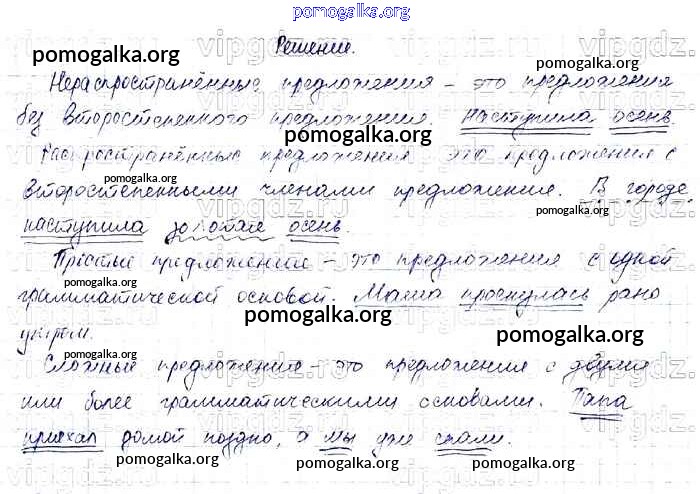 pomogalka.org
Решение.
pomogalka.org
vipgdz.ru
Нераспространённые предложения – это предложения
pomogalka.org
без второстепенного предложения. Наступила осень.
pomogalka.org
Распространённые предложения это предложения с
второстепенными членами предложение. В городе
pomogalka.org
pomogalka.org
наступила золотая осень.
Простые предложения – это предложения с одной
грамматической основой. Мама проснулась рано
pomogalka.org
утром.
pomogalka.org
pomogalka.org
Сложные предложения – это предложения с двумя
или более грамматическими основами. Папа
приехал домой поздно, а мы уже спали.
pomogalka.org
pomogalka.org
pomogalka.org